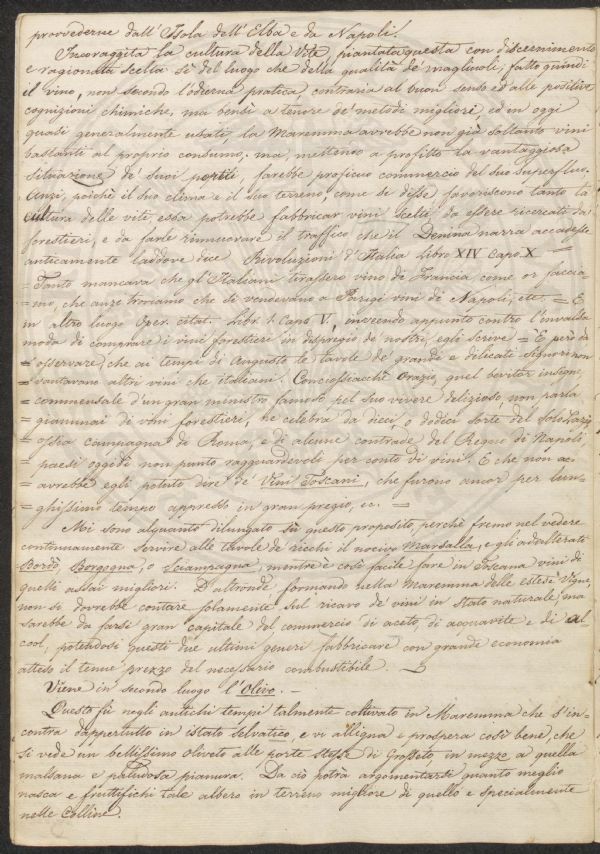 provvederne dall'Isola dell'Elba e da Napoli.
Incoraggita la cultura della Vite, piantata questa con discernimento
e ragionata scelta sì del luogo che della qualità de' magliuoli; fatto quindi
il vino, non secondo l'odierna pratica contraria al buon senso ed alle positive
cognizioni chimiche, ma bensì a tenore de' metodi migliori, ed in oggi
quasi generalmente usati, la Maremma avrebbe non già soltanto vini
bastanti al proprio consumo; ma, mettendo a profitto la vantaggiosa
situazione de' suoi portti, farebbe proficuo commercio del suo superfluo.
Anzi, poichè il suo clima e il suo terreno, come si disse, favoriscono tanto la
cultura delle vite, essa potrebbe fabbricar vini scelti, da essere ricercati da'
forestieri, e da farle rinnuovare il traffico che il Denina narra accadesse
anticamente laddove dice Revoluzioni d'Italia Libro XIV Capo. X =
= Tanto mancava che gl'Italiani tirassero vino di Francia come or faccia-
= mo, che anzi troviamo che si vendevano a Parigi vini di Napoli, etc. = E
in altro luogo Oper. citat. Libr. 1. Capo V, invecendo appunto contro l'invalsa
moda di comprare i vini forestieri in dispregio de' nostri, egli scrive = E però da
= osservare, che ai tempi di Augusto le tavole de' grandi e dilicati signori non
= vantavano altri vini che italiani. Conciossiacchè Orazio, quel bevitor insigne,
= commensale d'un gran ministro famoso pel suo vivere delizioso, non parla
= giammai di vini forestieri, he celebra da dieci, o dodici sorte del solo Lazio
= ossia campagna di Roma, e di alcune contrade del Regno di Napoli,
= paesi oggidì non punto ragguardevoli per conto di vini. E che non ci
= avrebbe egli potuto dire de' Vini Toscani, che furono ancor per lun-
= ghissimo tempo appresso in gran pregio, ec. =
Mi sono alquanto dilungato sù questo proposito, perchè fremo nel vedere
continuamente servire alle tavole de' ricchi il nocivo Marsalla, e gli adulterati
Bordò, Borgogna, o Sciampagna, mentre è così facile fare in Toscana vini di
quelli assai migliori. D'altronde formando nella Maremma delle estese Vigne,
non si dovrebbe contare solamente sul ricavo de' vini in stato naturale, ma
sarebbe da farsi gran capitale del commercio di aceto, di acquavite e di al
cool, potendosi questi due ultimi generi fabbricare con grande economia
atteso il tenue prezzo del necessario combustibile.
Viene in secondo luogo l'Olivo. —
Questo fù negli antichi tempi talmente coltivato in Maremma che s'in-
contra dappertutto in istato selvatico, e vi alligna e prospera così bene, che
si vede un bellissimo oliveto alle porte stesse di Grosseto, in mezzo a quella
malsana e paludosa pianura. Da ciò potrà argomentarsi quanto meglio
nasca e fruttifichi tale albero in terreno migliore di quello e specialmente
nelle Colline.